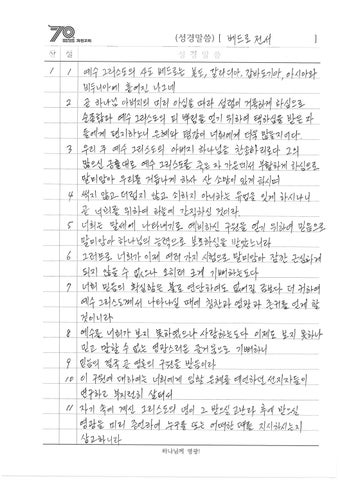 70 제천교회
(성경말씀) [ 베드로 전서 ]
장 절 성 경 말 씀
1 1 예수 그리스도의 사도 베드로는 본도, 갈라디아, 갑바도기아, 아시아와
비두니아에 흩어진 나그네
2 곧 하나님 아버지의 미리 아심을 따라 성령이 거룩하게 하심으로
순종함과 예수 그리스도의 피 뿌림을 얻기 위하여 택하심을 받은 자
들에게 편지하노니 은혜와 평강이 너희에게 더욱 많을지어다.
3 우리 주 예수 그리스도의 아버지 하나님을 찬송하리로다 그의
많으신 긍휼대로 예수 그리스도를 죽은 자 가운데서 부활하게 하심으로
말미암아 우리를 거듭나게 하사 산 소망이 있게 하시며
4 썩지 않고 더럽지 않고 쇠하지 아니하는 유업을 잇게 하시나니
곧 너희를 위하여 하늘에 간직하신 것이라.
5 너희는 말세에 나타내기로 예비하신 구원을 얻기 위하여 믿음으로
말미암아 하나님의 능력으로 보호하심을 받았느니라
6 그러므로 너희가 이제 여러 가지 시험으로 말미암아 잠깐 근심하게
되지 않을 수 없으나 오히려 크게 기뻐하는도다
7 너희 믿음의 확실함은 불로 연단하여도 없어질 금보다 더 귀하여
예수 그리스도께서 나타나실 때에 칭찬과 영광과 존귀를 얻게 할
것이니라
8 예수를 너희가 보지 못하였으나 사랑하는도다 이제도 보지 못하나
믿고 말할 수 없는 영광스러운 즐거움으로 기뻐하니
9 믿음의 결국 곧 영혼의 구원을 받음이라
10 이 구원에 대하여는 너희에게 임할 은혜를 예언하던 선지자들이
연구하고 부지런히 살펴서
11 자기 속에 계신 그리스도의 영이 그 받으실 고난과 후에 받으실
영광을 미리 증언하여 누구를 또는 어떠한 때를 지시하시는지
상고하니라
하나님께 영광!